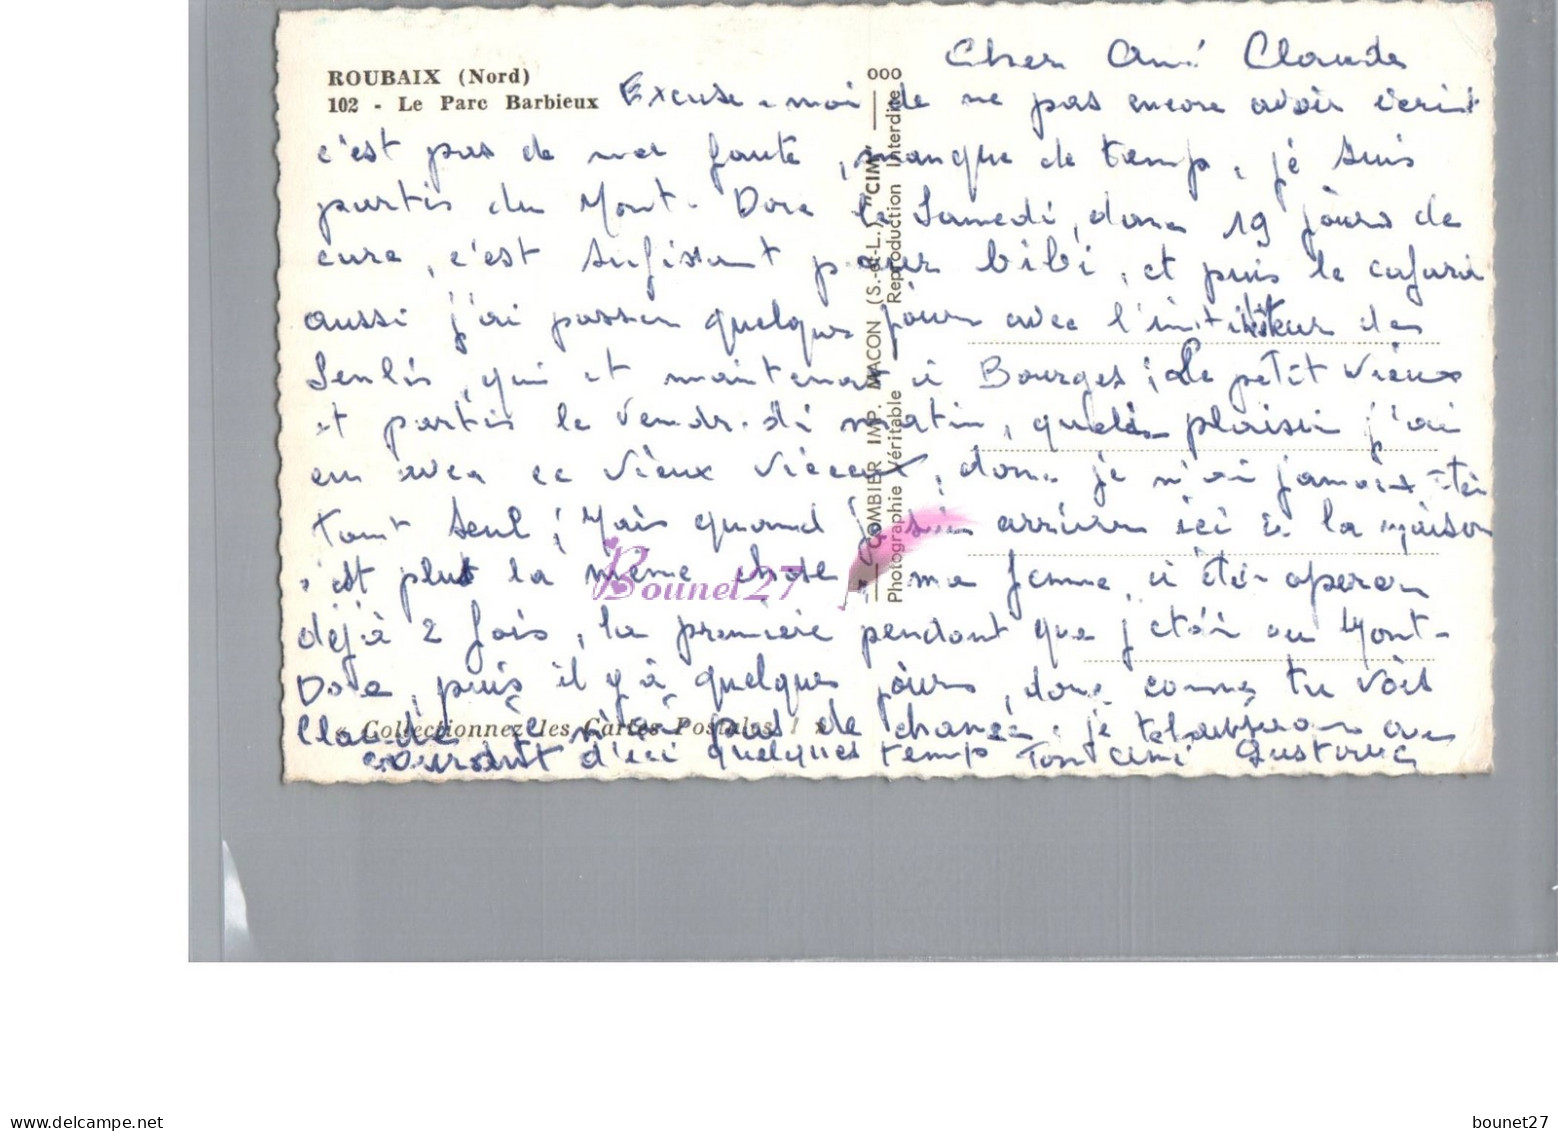 ROUBAIX (Nord)
102 - Le Parc Barbieux
Cher Ami Claude
Excuse-moi de ne pas encore avoir écrit
c'est pas de ma faute, manque de temp, jé suis
partis du Mont-Dore le Samedi, donc 19 jours de
cure, c'est sufisant pour bibi, et puis le cafard
aussi j'ai passer quelque jour avec l'instituteur de
Senlis, qui et maintenant à Bourges; Le petit vieux
et partis le vendredi matin, quelle plaisir j'ai
eu avec ce vieux vieux, donc je n'ai jamais été
tout seul; Mais quand je suis arriver ici à la maison
s'est plus la même chose, ma femme, à étér operer
déjà 2 fois, la première pendant que j étéi au Mont-
Dore, puis il y à quelque jours, donc comme tu vois
Claude il n'y à pas de chance, je te laisserai au
courant d'ici quelques temp Ton ami Gustave
« Collectionnez les Cartes Postales ! »
COMBIER IMP. MACON (S.-et-L.) "CIM"
Photographie Véritable Reproduction Interdite
Bounet27
delcampe.net
bounet27